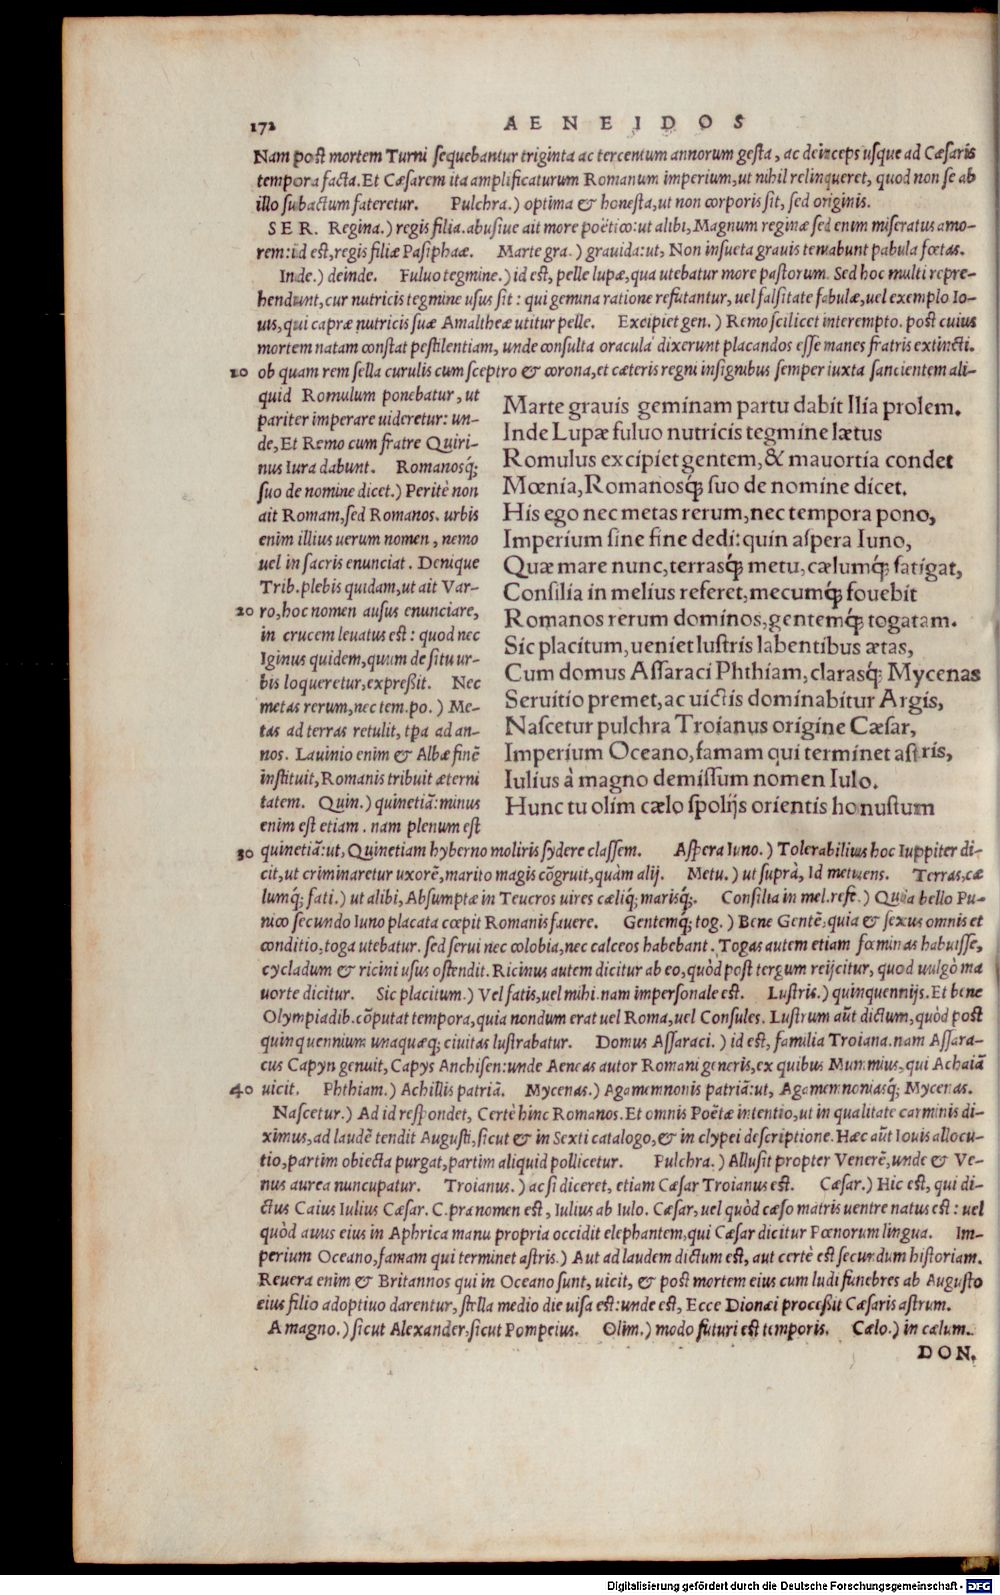 172 AENEIDOS
Nam post mortem Turni sequebantur triginta ac tercentum annorum gesta, ac deinceps usque ad Cæsaris
tempora facta. Et Cæsarem ita amplificaturum Romanum imperium, ut nihil relinqueret, quod non se ab
illo subactum fateretur. Pulchra.) optima & honesta, ut non corporis sit, sed originis.
SER. Regina.) regis filia. abusiue ait more poëtico: ut alibi, Magnum reginæ sed enim miseratus amo-
rem: id est, regis filiæ Pasiphaæ. Marte gra.) grauida: ut, Non insueta grauis tentabunt pabula fœtas.
Inde.) deinde. Fuluo tegmine.) id est, pelle lupæ, qua utebatur more pastorum. Sed hoc multi repre-
hendunt, cur nutricis tegmine usus sit: qui gemina ratione refutantur, uel falsitate fabulæ, uel exemplo Io-
uis, qui capræ nutricis suæ Amaltheæ utitur pelle. Excipiet gen.) Remo scilicet interempto. post cuius
mortem natam constat pestilentiam, unde consulta oracula dixerunt placandos esse manes fratris extincti.
10 ob quam rem sella curulis cum sceptro & corona, et cæteris regni insignibus semper iuxta sancientem ali-
quid Romulum ponebatur, ut
pariter imperare uideretur: un-
de, Et Remo cum fratre Quiri-
nus Iura dabunt. Romanosq́;
suo de nomine dicet.) Peritè non
ait Romam, sed Romanos. urbis
enim illius uerum nomen, nemo
uel in sacris enunciat. Denique
Trib. plebis quidam, ut ait Var-
20 ro, hoc nomen ausus enunciare,
in crucem leuatus est: quod nec
Iginus quidem, quum de situ ur-
bis loqueretur, expreßit. Nec
metas rerum, nec tem.po.) Me-
tas ad terras retulit, tpa ad an-
nos. Lauinio enim & Albæ finē
instituit, Romanis tribuit æterni
tatem. Quin.) quinetiā: minus
enim est etiam. nam plenum est
Marte grauis geminam partu dabit Ilia prolem.
Inde Lupæ fuluo nutricis tegmine lætus
Romulus excipiet gentem, & mauortia condet
Mœnia, Romanosq́; suo de nomine dicet.
His ego nec metas rerum, nec tempora pono,
Imperium sine fine dedi: quin aspera Iuno,
Quæ mare nunc, terrasq́; metu, cælumq́; fatigat,
Consilia in melius referet, mecumq́; fouebit
Romanos rerum dominos, gentemq́; togatam.
Sic placitum, ueniet lustris labentibus ætas,
Cum domus Assaraci Phthiam, clarasq́; Mycenas
Seruitio premet, ac uictis dominabitur Argis,
Nascetur pulchra Troianus origine Cæsar,
Imperium Oceano, famam qui terminet astris,
Iulius à magno demissum nomen Iulo.
Hunc tu olim cælo spolijs orientis honustum
30 quinetiā: ut, Quinetiam hyberno moliris sydere classem. Aspera Iuno.) Tolerabilius hoc Iuppiter di-
cit, ut criminaretur uxorē, marito magis cōgruit, quàm alij. Metu.) ut suprà, Id metuens. Terras, cæ
lumq́; fati.) ut alibi, Absumptæ in Teucros uires cæliq́; marisq́;. Consilia in mel. refe.) Quia bello Pu-
nico secundo Iuno placata cœpit Romanis fauere. Gentemq́; tog.) Bene Gentē, quia & sexus omnis et
conditio, toga utebatur. sed serui nec colobia, nec calceos habebant. Togas autem etiam fœminas habuisse,
cycladum & ricini usus ostendit. Ricinus autem dicitur ab eo, quòd post tergum reijcitur, quod uulgò ma
uorte dicitur. Sic placitum.) Vel fatis, uel mihi. nam impersonale est. Lustris.) quinquennijs. Et bene
Olympiadib. cōputat tempora, quia nondum erat uel Roma, uel Consules. Lustrum aūt dictum, quòd post
quinquennium unaquæq; ciuitas lustrabatur. Domus Assaraci.) id est, familia Troiana. nam Assara-
cus Capyn genuit, Capys Anchisen: unde Aeneas autor Romani generis, ex quibus Mummius, qui Achaiā
40 uicit. Phthiam.) Achillis patriā. Mycenas.) Agamemnonis patriā: ut, Agamemnoniasq́; Mycenas.
Nascetur.) Ad id respondet, Certè hinc Romanos. Et omnis Poëtæ intentio, ut in qualitate carminis di-
ximus, ad laudē tendit Augusti, sicut & in Sexti catalogo, & in clypei descriptione. Hæc aūt Iouis allocu-
tio, partim obiecta purgat, partim aliquid pollicetur. Pulchra.) Allusit propter Venerē, unde & Ve-
nus aurea nuncupatur. Troianus.) ac si diceret, etiam Cæsar Troianus est. Cæsar.) Hic est, qui di-
ctus Caius Iulius Cæsar. C. prænomen est, Iulius ab Iulo. Cæsar, uel quòd cæso matris uentre natus est: uel
quòd auus eius in Aphrica manu propria occidit elephantem, qui Cæsar dicitur Pœnorum lingua. Im-
perium Oceano, famam qui terminet astris.) Aut ad laudem dictum est, aut certè est secundum historiam.
Reuera enim & Britannos qui in Oceano sunt, uicit, & post mortem eius cum ludi funebres ab Augusto
eius filio adoptiuo darentur, stella medio die uisa est: unde est, Ecce Dionæi proceßit Cæsaris astrum.
A magno.) sicut Alexander, sicut Pompeius. Olim.) modo futuri est temporis. Cælo.) in cælum.
DON.
Digitalisierung gefördert durch die Deutsche Forschungsgemeinschaft - DFG